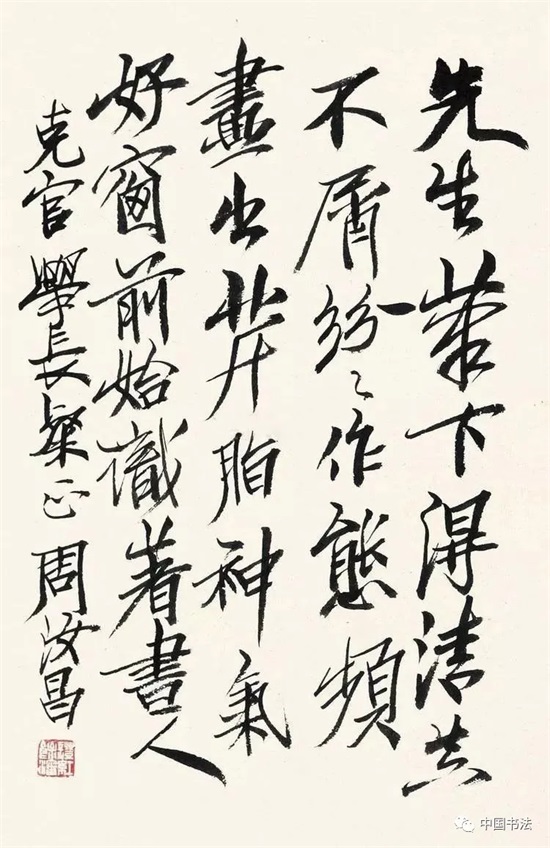 先生筆下得清真
不屑紛〻作態頻
畫出芹脂神氣
好窗前始識著書人
克官學長粲正 周汝昌
中国书法